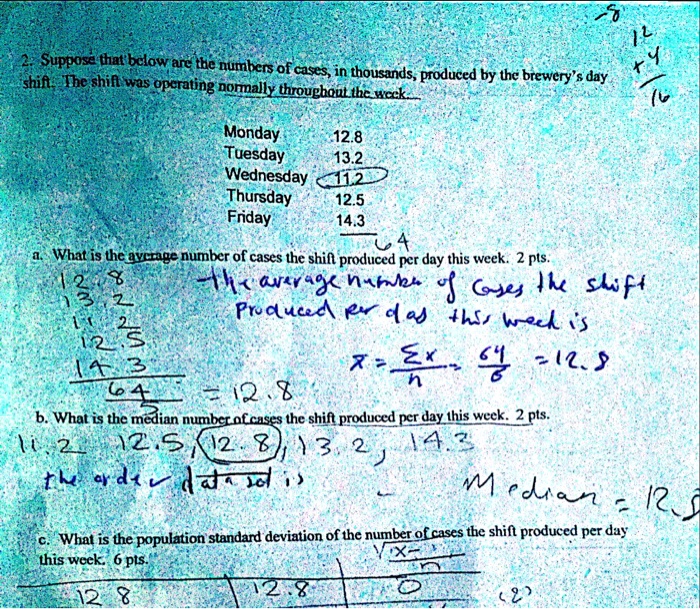 -8
12
+4
16
2. Suppose that below are the numbers of cases, in thousands, produced by the brewery's day
shift. The shift was operating normally throughout the week.
Monday 12.8
Tuesday 13.2
Wednesday 11.2
Thursday 12.5
Friday 14.3
64
a. What is the average number of cases the shift produced per day this week. 2 pts.
12.8
13.2
11.2
12.5
14.3
64
5
= 12.8
the average number of cases the shift
produced per day this week is
x̄ = Σx/n = 64/5 = 12.8
b. What is the median number of cases the shift produced per day this week. 2 pts.
11.2 12.5, 12.8, 13.2, 14.3
the order data set is
Median = 12.8
c. What is the population standard deviation of the number of cases the shift produced per day
this week. 6 pts.
12.8 12.8 0